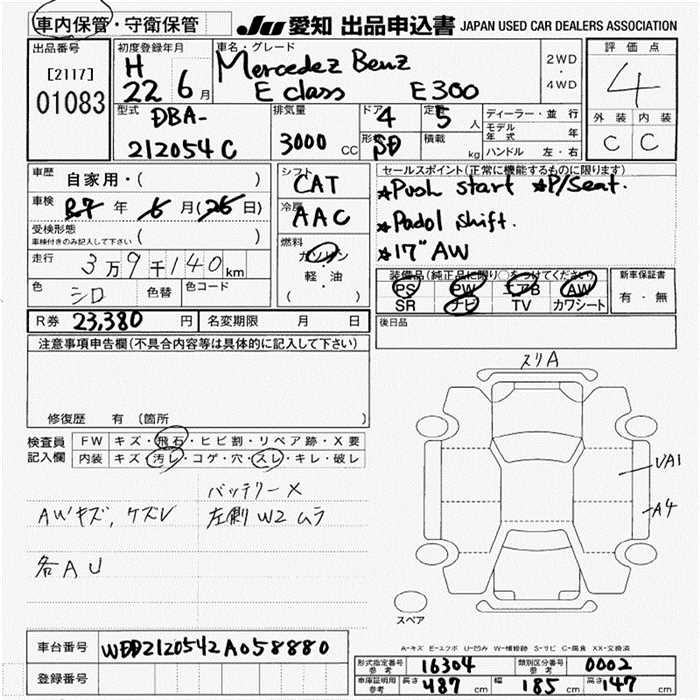 車内保管・守衛保管
JU 愛知 出品申込書 JAPAN USED CAR DEALERS ASSOCIATION
出品番号
[2117]
01083
初度登録年月
H
22 6月
車名・グレード
Mercedez Benz
E class E300
2WD
・
4WD
評価点
4
外装 内装
C C
型式
DBA-
212054C
排気量
3000 CC
ドア 4
形状 SD
定員 5 人
積載 kg
ディーラー・並行
モデル年式 年
ハンドル 左・右
車歴
自家用・( )
車検
R7年 6月(26日)
受検形態
車検付きのみ記入して下さい ( )
走行
3万9千140km
色 シロ 色替 色コード
シフト
CAT
冷房
AAC
燃料
ガソリン
軽・油
( ・ )
セールスポイント(正常に機能するものに限ります)
★Push start ★P/Seat.
★Padol shift.
★17"AW
装備品(純正品に限り○をつけてください)
PS PW エアB AW
SR ナビ TV カワシート
新車保証書
有・無
R券 23,380 円 名変期限 月 日
後日品
注意事項申告欄(不具合内容等は具体的に記入して下さい)
修復歴 有 (箇所 )
検査員
記入欄
FW キズ・飛石・ヒビ割・リペア跡・X要
内装 キズ・汚レ・コゲ・穴・スレ・キレ・破レ
バッテリーX
AWキズ,ケズレ 左側W2 ムラ
各AU
スリA
UA1
A4
スペア
A-キズ E-エクボ U-凹み W-補修跡 S-サビ C-腐食 XX-交換済
車台番号 WDD2120542A058880
登録番号
形式指定番号 参考 16304 類別区分番号 参考 0002
車庫証明用 参考 長さ 487 cm 幅 185 cm 高さ 147 cm